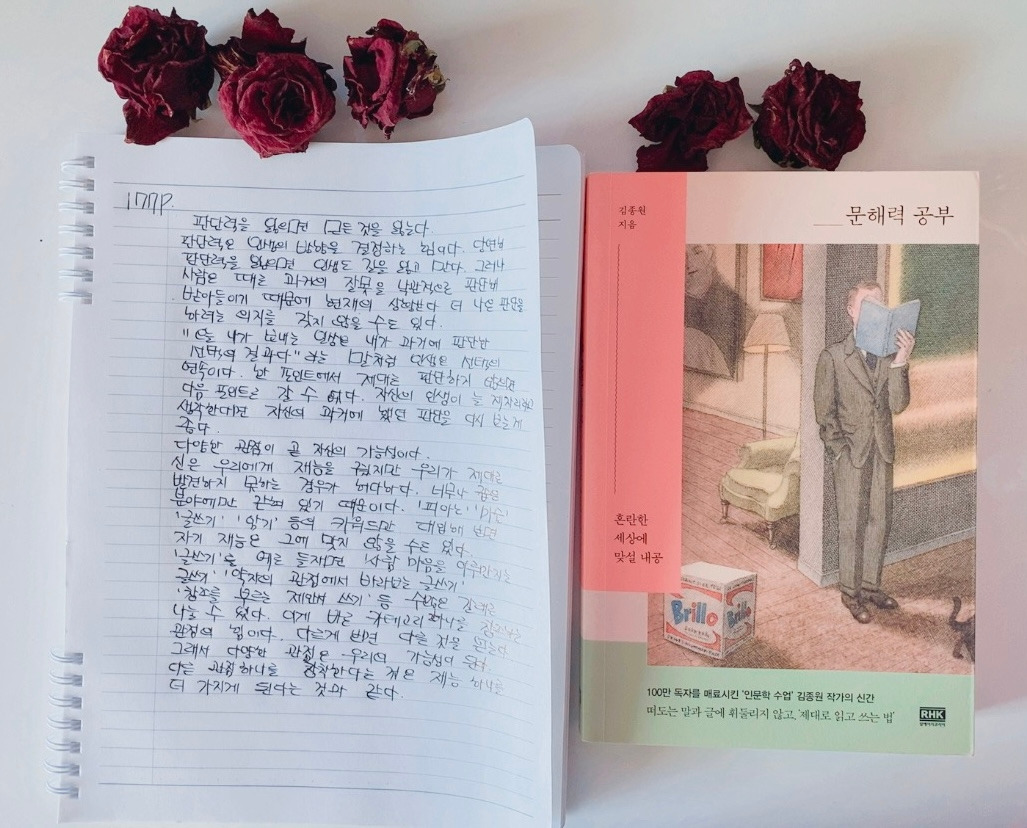 177P.
판단력을 잃으면 모든 것을 잃는다
판단력은 인생의 방향을 결정하는 힘이다. 당연히
판단력을 잃으면 인생도 길을 잃고 만다. 그러나
사람은 때로 과거의 잘못을 낙관적으로 판단해
받아들이기 때문에 현재의 상황보다 더 나은 판단을
하려는 의지를 갖지 않을 수도 있다.
"오늘 내가 보내는 인생은 내가 과거에 판단한
선택의 결과다"라는 말처럼 인생은 선택의
연속이다. 한 포인트에서 제대로 판단하지 않으면
다음 포인트로 갈 수 없다. 자신의 인생이 늘 제자리라고
생각한다면 자신의 과거에 했던 판단을 다시 보는게
좋다.
다양한 관점이 곧 자신의 가능성이다.
신은 우리에게 재능을 줬지만 우리가 제대로
발견하지 못하는 경우가 허다하다. 너무나 좁은
분야에만 갇혀 있기 때문이다. '피아노' '미술'
'글쓰기' '악기' 등의 키워드만 대입해 보면
자기 재능은 그에 맞지 않을 수도 있다.
'글쓰기'로 예로 들자면 '사람 마음을 어루만지는
글쓰기' '약자의 관점에서 바라보는 글쓰기'
'창조를 부르는 제안서 쓰기' 등 수많은 갈래로
나눌 수 있다. 이게 바로 카테고리 하나를 창조하는
관점의 힘이다. 다르게 보면 다른 것을 얻는다.
그래서 다양한 관점은 우리의 가능성이 된다.
다른 관점 하나를 장착한다는 것은 재능 하나를
더 가지게 된다는 것과 같다.
김종원
지음
문해력 공부
혼란한
세상에
맞설 내공
Brillo
Brillo
100만 독자를 매료시킨 '인문학 수업' 김종원 작가의 신간
떠도는 말과 글에 휘둘리지 않고, '제대로 읽고 쓰는 법'
RHK
알에이치코리아